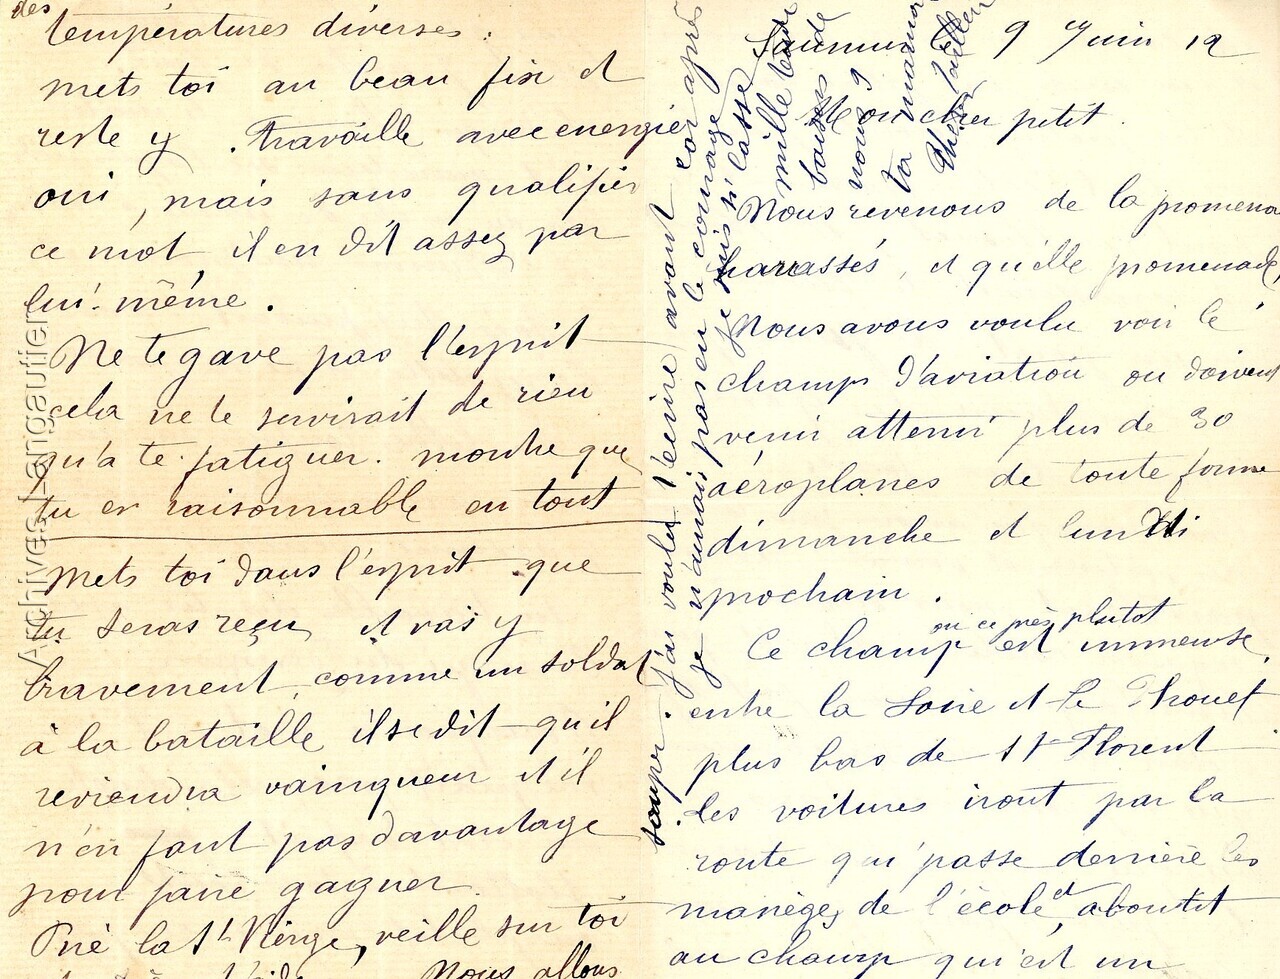 des
températures diverses.
mets toi au beau fixe et
reste y. Travaille avec energie
oui, mais sans qualifier
ce mot il en dit assez par
lui-même.
Ne te gave pas l'esprit
cela ne te servirait de rien
qu'à te fatiguer. montre que
tu es raisonnable en tout
Mets toi dans l'esprit que
tu seras reçu et vas y
bravement, comme un soldat
à la bataille il se dit qu'il
reviendra vainqueur et il
n'en faut pas davantage
pour faire gagner
Prie la Ste Vierge, veille sur toi
Nous allons
Saumur 9 Juin 12
Mon cher petit.
Nous revenons de la promena
harassés, et qu'elle promenade,
Nous avons voulu voir le
champs d'aviation ou doivent
venir atterrir plus de 30
aéroplanes de toute forme
dimanche et lundi
prochain.
ou ce près plutot
Ce champ est immense,
entre la Loire et le Thouet
plus bas de St Florent
les voitures iront par la
route qui passe derrière les
manèges de l'école et aboutit
au champ qui est un
J'ai voulu t'écrire avant
souper. car après
je n'aurais pas eu le courage
je suis si lasse
mille
baisers de
nous 9
ta maman
Archives Langautier